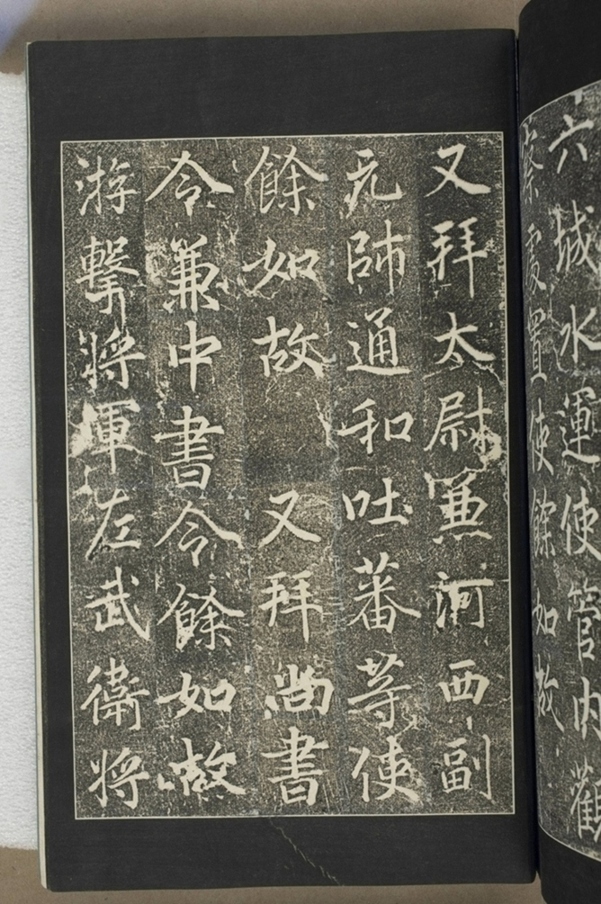 六城水運使管內觀
察處置使餘如故
又拜太尉兼河西副
元帥通和吐蕃等使
餘如故 又拜尚書
令兼中書令餘如故
游擊將軍左武衛將